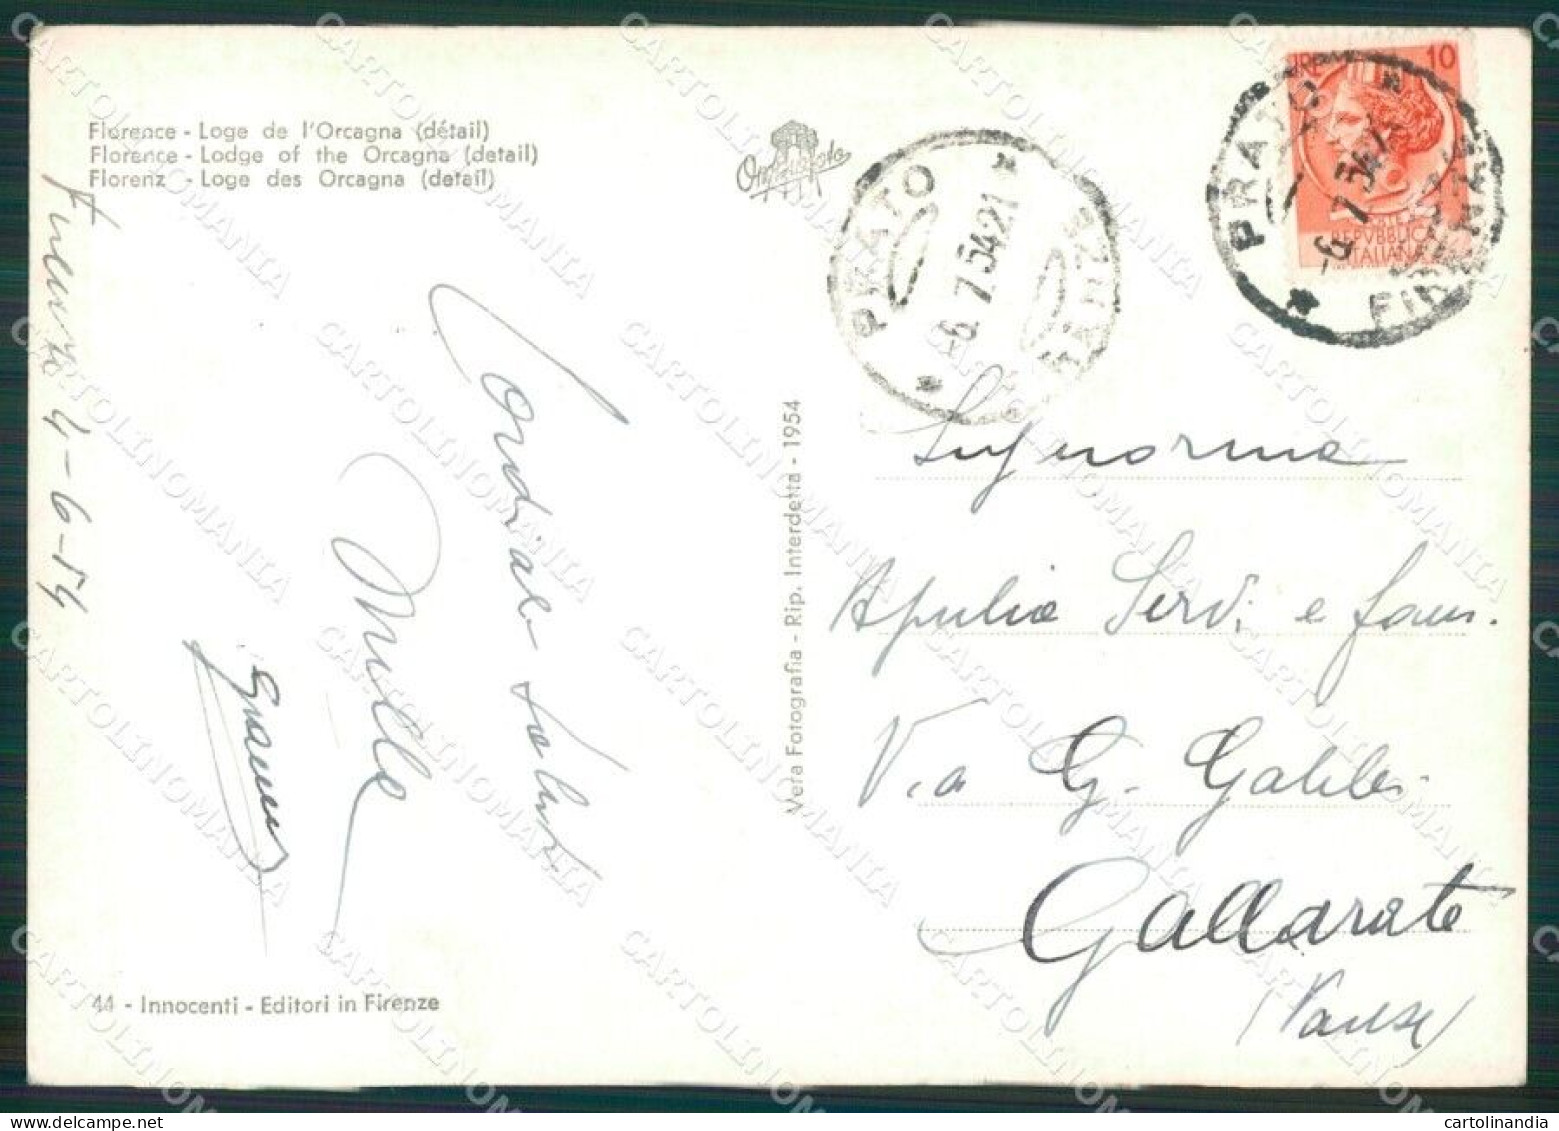 Florence - Loge de l'Orcagna (détail)
Florence - Lodge of the Orcagna (detail)
Florenz - Loge des Orcagna (detail)
Firenze 4-6-54
Cordiali saluti
44 - Innocenti - Editori in Firenze
Vera Fotografia - Rip. Interdetta - 1954
PRATO
-6.7.54.21
FIRENZE
PRATO
-6.7.54
FIRENZE
LIRE 10
POSTE
REPVBBLICA
ITALIANA
Signorina
Apulia Servi e fam.
Via G. Galilei
Gallarate
(Varese)
CARTOLINOMANIA
cartolinandia